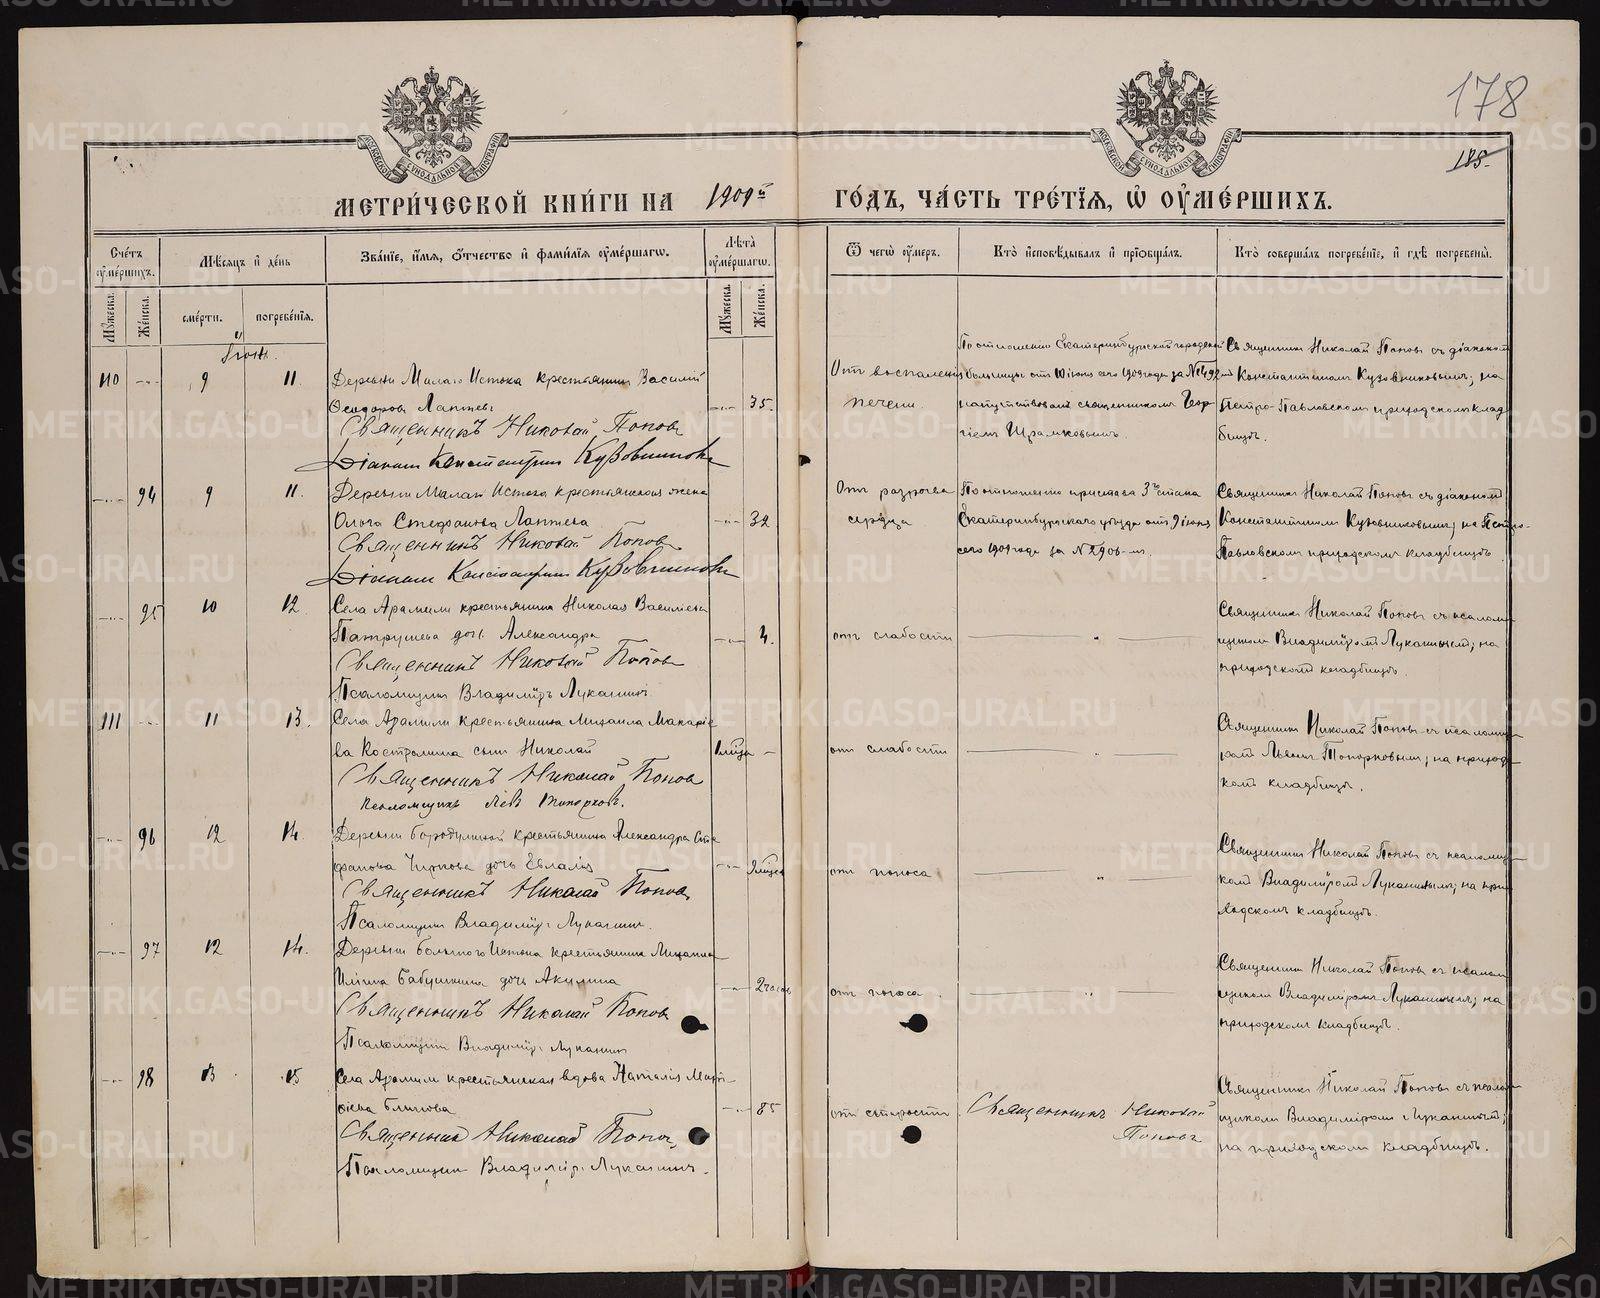 178
185.
МОСКОВСКОЙ СѴНОДАЛЬНОЙ ТИПОГРАФІИ
МОСКОВСКОЙ СѴНОДАЛЬНОЙ ТИПОГРАФІИ
МЕТРИ́ЧЕСКОЙ КНИ́ГИ НА 1909й ГО́ДЪ, ЧА́СТЬ ТРЕ́ТІЯ, Ѽ ОУМЕ́РШИХЪ.
Сче́тъ оуме́ршихъ.
Мѣ́сяцъ и де́нь
Зва́ніе, и́мя, о́тчество и фами́лія оуме́ршагѡ.
Лѣ́та оуме́ршагѡ.
Ѿ чегѡ̀ оу́меръ.
Кто̀ исповѣ́дывалъ и пріѡбща́лъ.
Кто̀ соверша́лъ погребе́ніе, и гдѣ̀ погребены̀.
Му́жеска.
Же́нска.
сме́рти.
погребе́нія.
Му́жеска.
Же́нска.
Іюнь.
110 9 11.
Деревни Малаго Истока крестьянинъ Василій
Ѳеодоровъ Лаптевъ 35.
Священникъ Николай Поповъ
Діаконъ Константинъ Кузовниковъ
Отъ воспаленія
печени.
По отношенію Екатеринбургской городской
больницы отъ 10 іюня сего 1909 года за №
напутствованъ священникомъ Геор
гіемъ Шрамковымъ.
Священникъ Николай Поповъ съ діакономъ
Константиномъ Кузовниковымъ; на
Петро-Павловскомъ приходскомъ клад
бищѣ.
94 9 11.
Деревни Малаго Истока крестьянская жена
Ольга Стефанова Лаптева 32
Священникъ Николай Поповъ
Діаконъ Константинъ Кузовниковъ
Отъ разрыва
сердца
По отношенію пристава 3го стана
Екатеринбургскаго уѣзда отъ 9 іюня
сего 1909 года за № 2906-мъ.
Священникъ Николай Поповъ съ діакономъ
Константиномъ Кузовниковымъ; на Петро-
Павловскомъ приходскомъ кладбищѣ
95 10 12.
Села Арамили крестьянина Николая Васильева
Патрушева дочь Александра
Священникъ Николай Поповъ
Псаломщикъ Владиміръ Луканинъ
отъ слабости
Священникъ Николай Поповъ съ псалом
щикомъ Владиміромъ Луканинымъ; на
приходскомъ кладбищѣ.
111 11 13.
Села Арамили крестьянина Михаила Макарье
ва Костромина сынъ Николай
Священникъ Николай Поповъ
Псаломщикъ Левъ Топорковъ.
отъ слабости
Священникъ Николай Поповъ съ псаломщи
комъ Львомъ Топорковымъ; на приход
скомъ кладбищѣ.
96 12 14.
Деревни Бородулиной крестьянина Александра Сте
фанова Чиркова дочь Евлалія
Священникъ Николай Поповъ
Псаломщикъ Владиміръ Луканинъ.
отъ поноса
Священникъ Николай Поповъ съ псаломщи
комъ Владиміромъ Луканинымъ; на при
ходскомъ кладбищѣ.
97 12 14.
Деревни Большого Истока крестьянина Михаила
Ильина Бабушкина дочь Акулина 2 часовъ
Священникъ Николай Поповъ
Псаломщикъ Владиміръ Луканинъ
отъ поноса
Священникъ Николай Поповъ съ псалом
щикомъ Владиміромъ Луканинымъ; на
приходскомъ кладбищѣ.
98 13 15
Села Арамили крестьянская вдова Наталія
Блинова 85
Священникъ Николай Поповъ
Псаломщикъ Владиміръ Луканинъ.
отъ старости
Священникъ Николай
Поповъ
Священникъ Николай Поповъ съ псалом
щикомъ Владиміромъ Луканинымъ;
на приходскомъ кладбищѣ.
METRIKI.GASO-URAL.RU